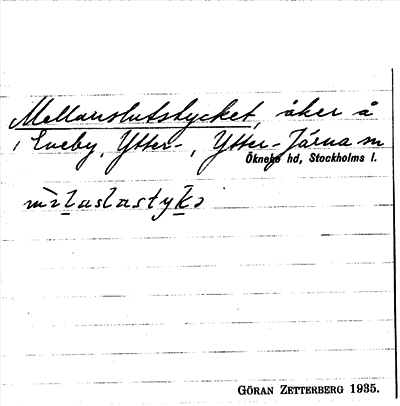 Mellanslutstycket, åker å
i Eneby, Ytter-, Ytter-Järna sn
Öknebo hd, Stockholms l.
GÖRAN ZETTERBERG 1935.